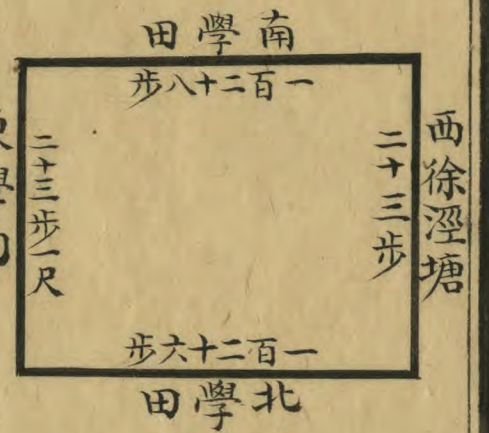 南學田
一百二十八步
西徐涇塘
二十三步
二十三步一尺
一百二十六步
北學田